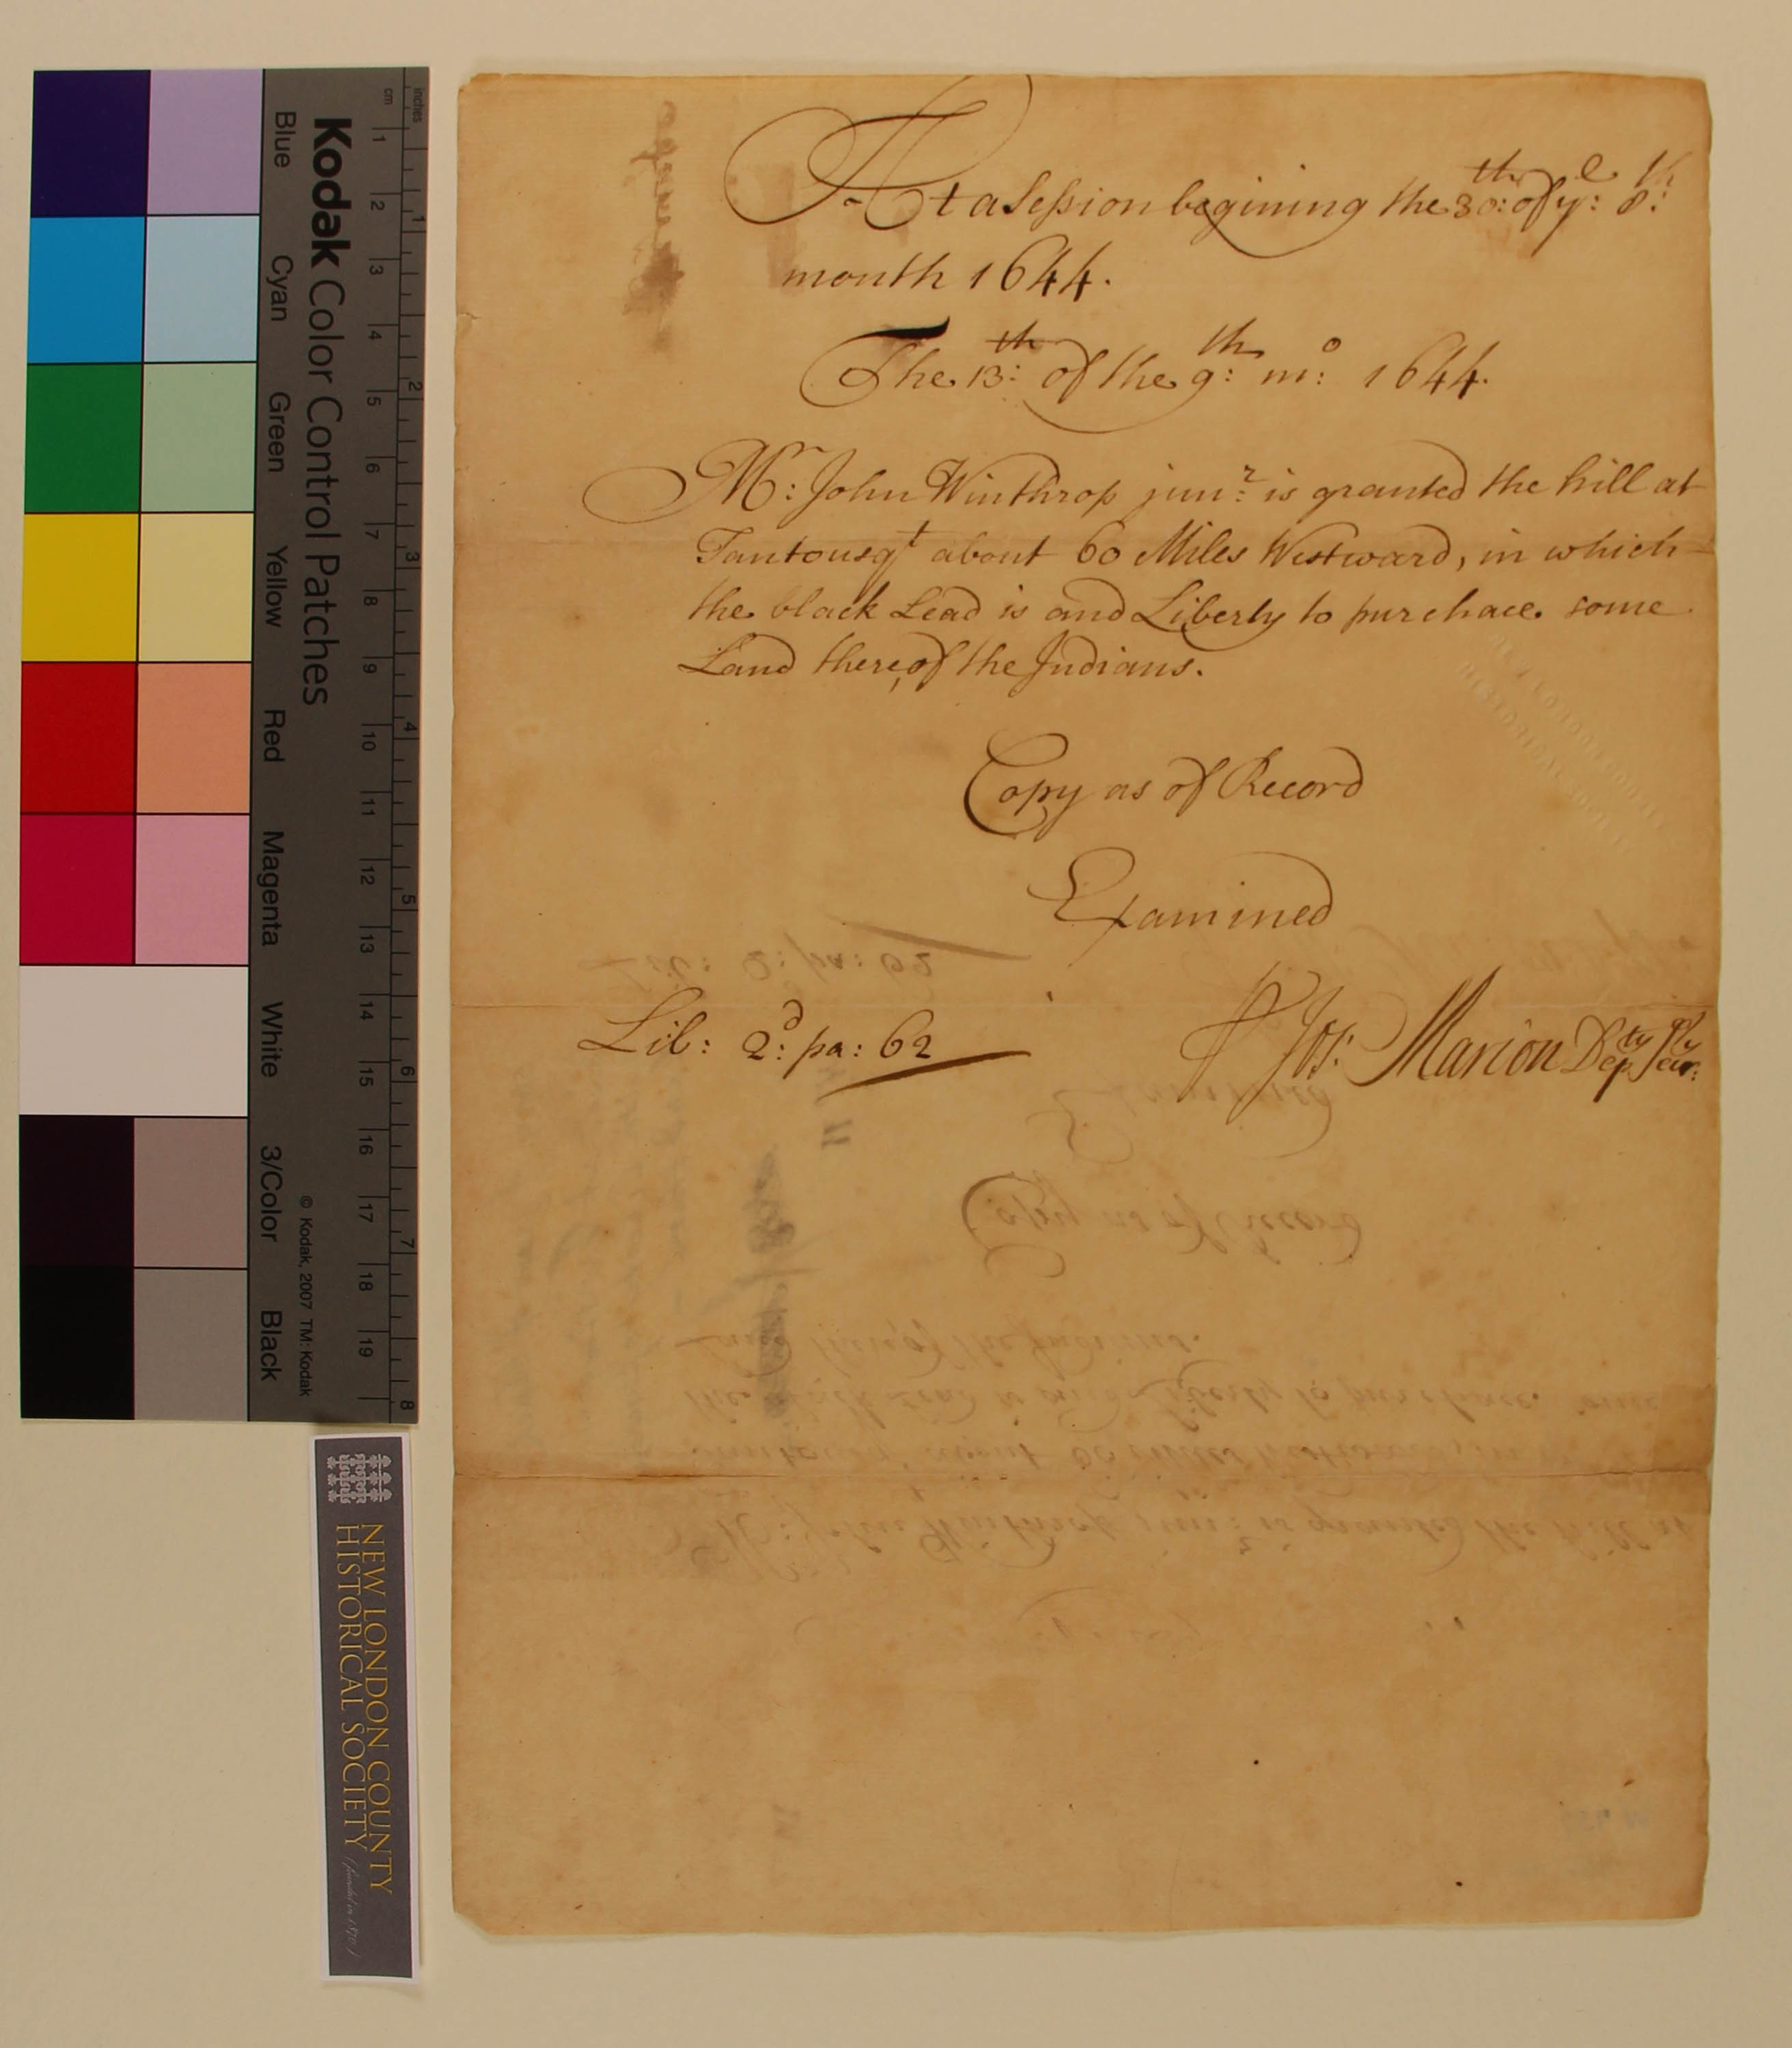 At a Session begining the 30th: of ye: 8th:
month 1644.
The 13th: of the 9th: mo: 1644.
Mr: John Winthrop junr: is granted the hill at
Tantousqt about 60 Miles Westward, in which
the black Lead is and Liberty to purchace some
Land there, of the Indians.
Copy as of Record
Examined
Lib: 2d: pa: 62
Jos: Marion Depty Secry:
Kodak Color Control Patches
Blue Cyan Green Yellow Red Magenta White 3/Color Black
© Kodak, 2007 TM: Kodak
cm 1 2 3 4 5 6 7 8 9 10 11 12 13 14 15 16 17 18 19
inches 1 2 3 4 5 6 7 8
NEW LONDON COUNTY
HISTORICAL SOCIETY (founded in 1870)